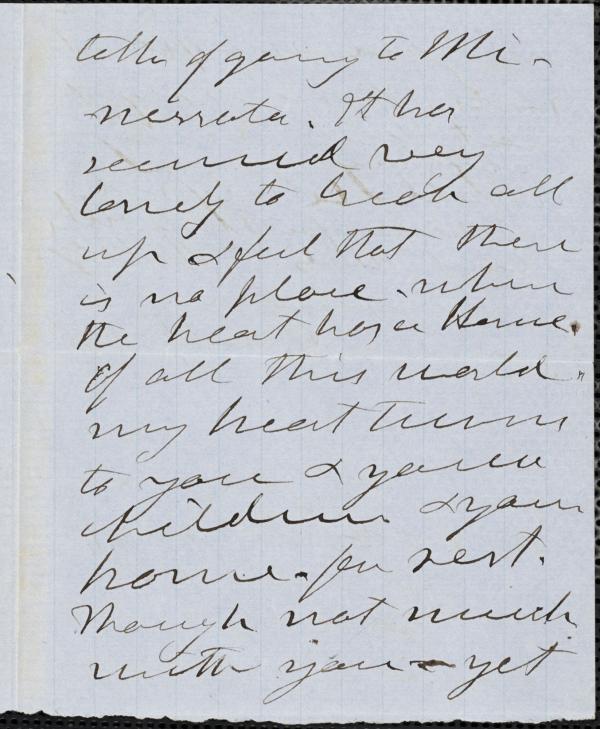 talk of going to Mi-
nessota. It has
seemed very
lonely to break all
up & feel that there
is no place. where
the heart has a Home.
Of all this world.
my heart turns
to you & your
children & your
home. for rest.
Though not much
with you - yet